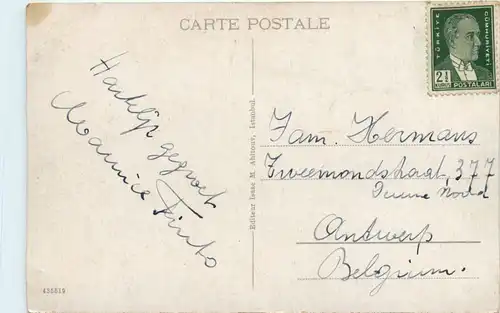 CARTE POSTALE
TÜRKİYE CÜMHURİYETİ
2½
KURUŞ POSTALARI
Hartelijk gegroet
Maurice Pinto
Editeur Isaac M. Ahitouv, Istanbul.
Fam. Hermans
377
Deurne Noord
Antwerp
Belgium.
435619